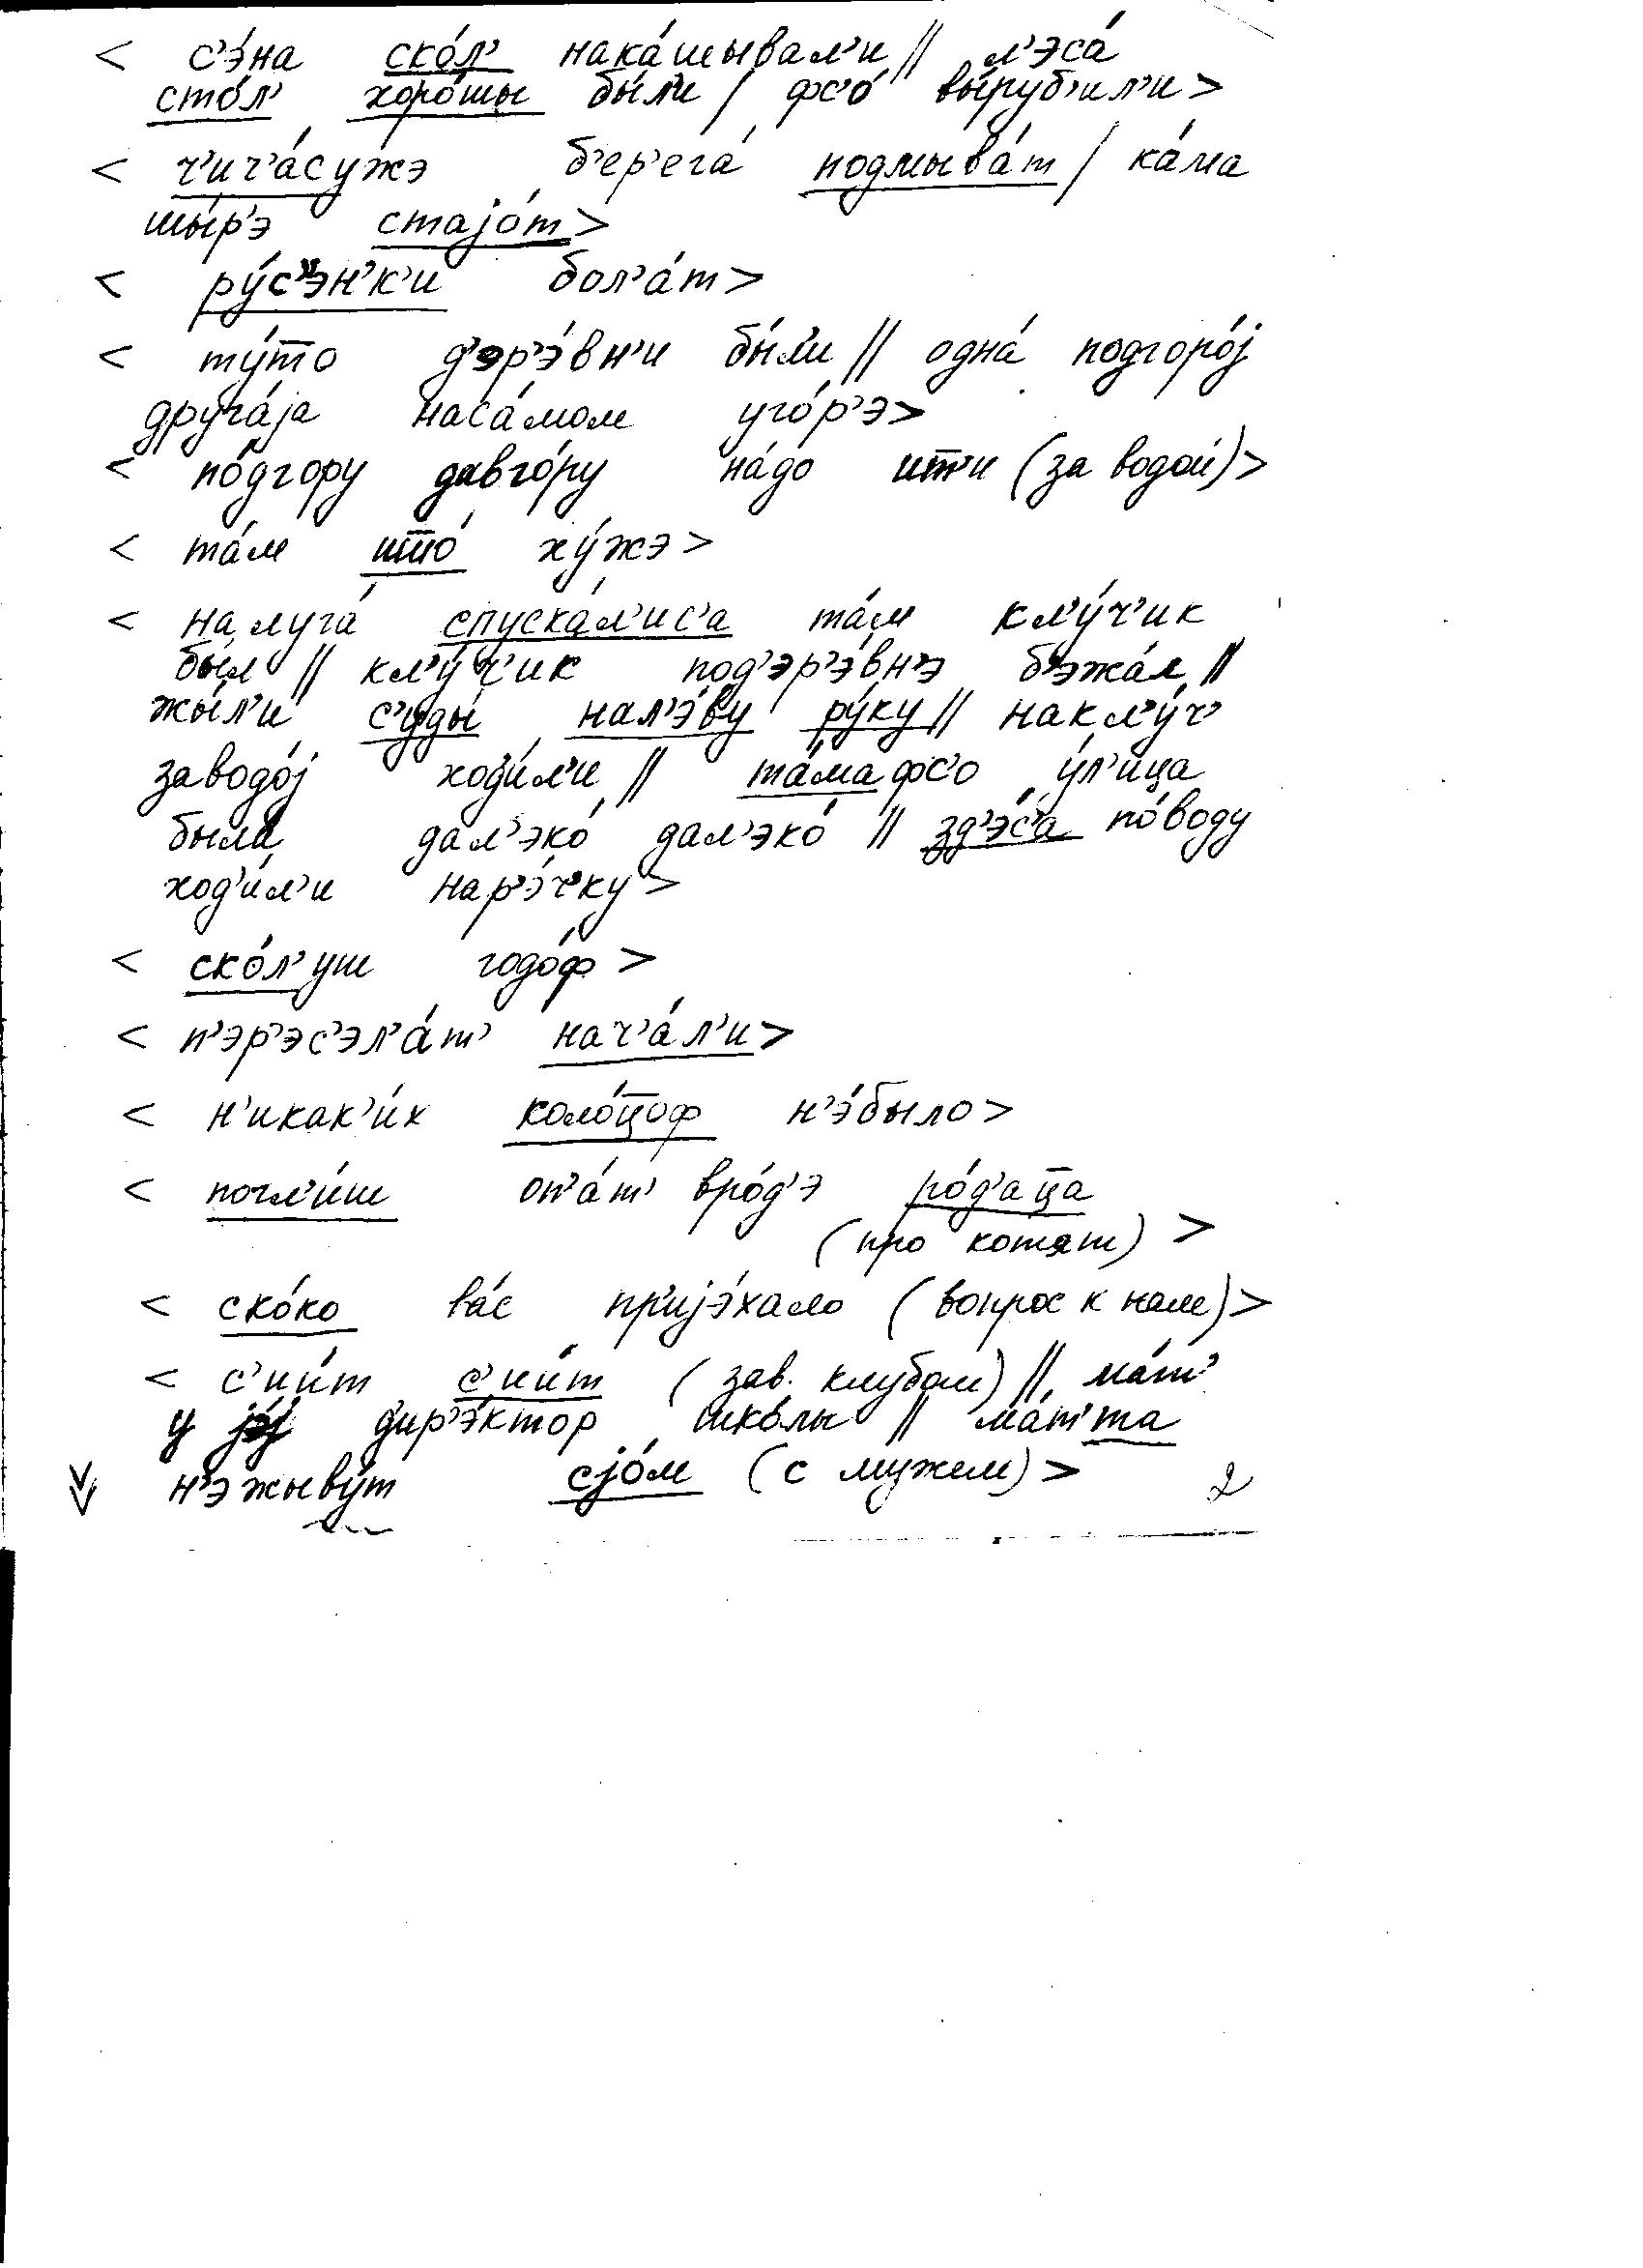 < с’э́на ско́л’ нака́шывал’и // л’эса́
сто́л’ хоро́шы бы́л’и / фс’о́ вы́руб’ил’и >
< ч’ич’а́сужэ б’ер’ега́ подмыва́т / ка́ма
шы́р’э стаjо́т >
< ру́с’эн’к’и бол’а́т >
< ту́т̅о д’эр’э́вн’и бы́л’и // одна́ подгоро́j
друга́jа наса́мом уго́р’э >
< по́дгору давго́ру на́до ит̅’и (за водой) >
< та́м шт̅о́ ху́жэ >
< на луга́ спуска́л’ис’а та́м кл’у́ч’ик
бы́л // кл’у́ч’ик под’эр’э́вн’э б’эжа́л //
жы́л’и с’уды́ нал’э́ву ру́ку // накл’у́ч’
заводо́j ход’и́л’и // та́ма фс’о у́л’ица
была́ дал’эко́ дал’эко́ // зд’э́с’а по́воду
ход’и́л’и нар’э́ч’ку >
< ско́л’уш годо́ф >
< п’эр’эс’эл’а́т’ нач’а́л’и >
< н’икак’и́х коло́ц̅оф н’э́было >
< погл’и́ш оп’а́т’ вро́д’э ро́д’ац̅а
(про котят) >
< ско́ко ва́с пр’иjэ́хало (вопрос к нам) >
< с’ии́т с’ии́т (зав. клубом) // ма́т’
у jэ́j д’ир’э́ктор шко́лы // ма́т’та
н’эжыву́т сjо́м (с мужем) >
2